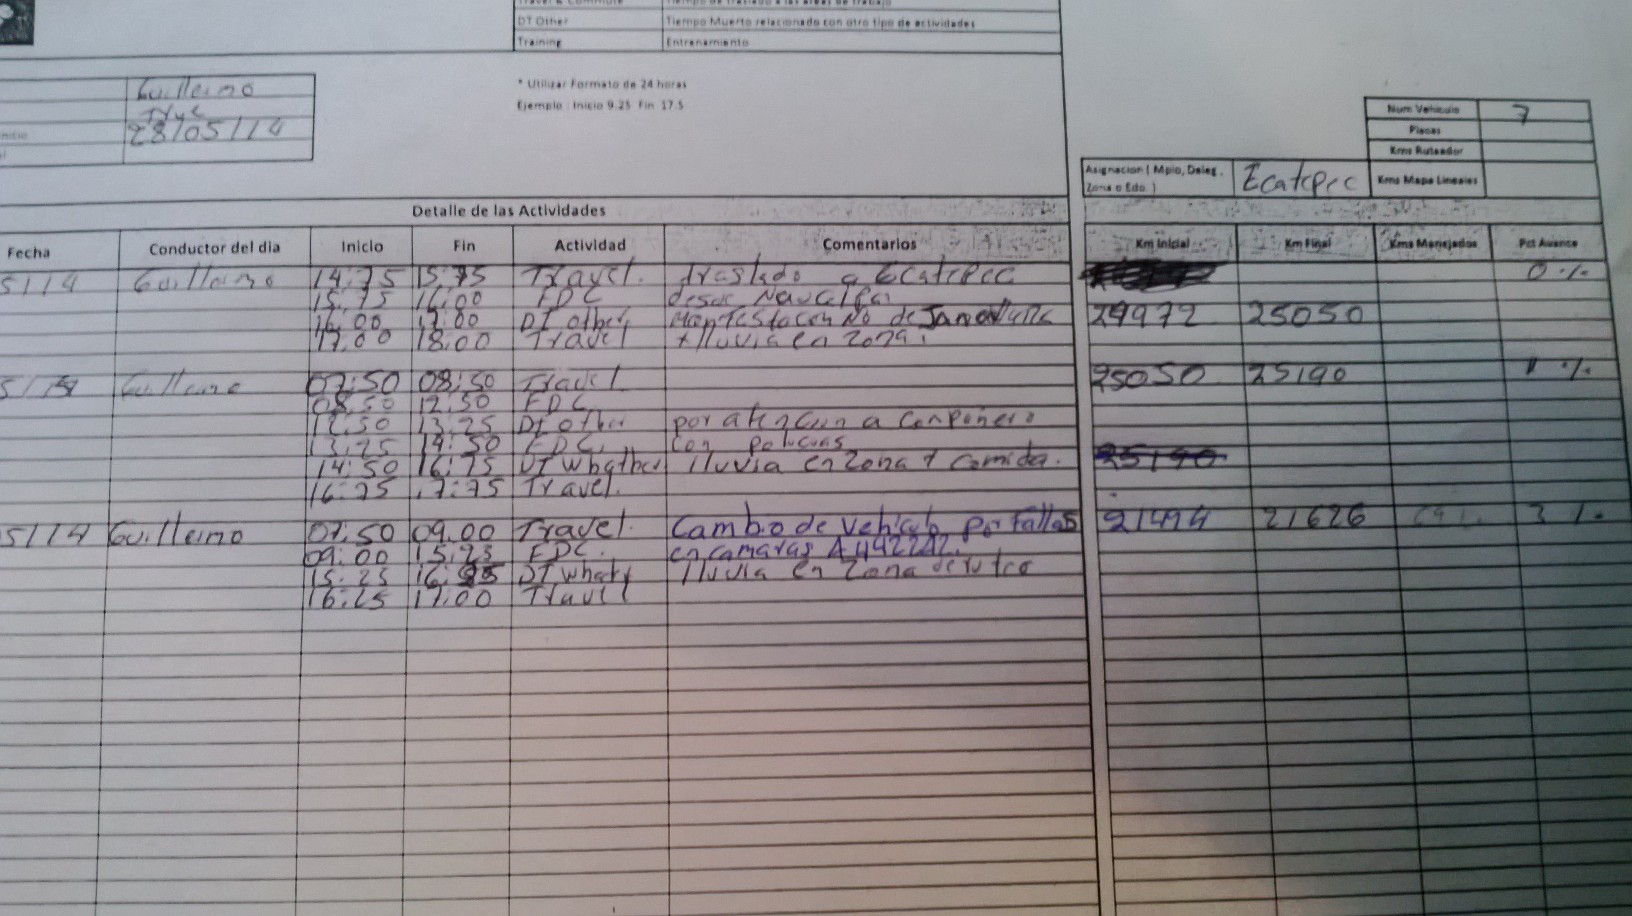 Travel & Commute Tiempo de traslado a las areas de trabajo
DT Other Tiempo Muerto relacionado con otro tipo de actividades
Training Entrenamiento
* Utilizar Formato de 24 horas
Ejemplo : Inicio 9.25 Fin 17.5
Guillermo
28/05/14
Num Vehiculo 7
Placas
Kms Ruteador
Asignacion ( Mpio, Deleg, Zona o Edo. ) Ecatepec Kms Mapa Lineales
Detalle de las Actividades
Fecha Conductor del dia Inicio Fin Actividad Comentarios Km Inicial Km Final Kms Manejados Pct Avance
5/14 Guillermo 14:75 15:75 Travel. traslado a Ecatepec 0 %
15:75 16:00 FDC desde Naucalpan
16:00 17:00 DT other, 24972 25050
17:00 18:00 Travel + lluvia en zona.
Guillermo 07:50 08:50 Travel 25050 25190 %
08:50 12:50 FDC
12:50 13:25 DT other por atencion a compañero
13:25 14:50 FDC. con
14:50 16:75 DT Whather lluvia en zona + comida. 25190
16:75 17:75 Travel.
5/14 Guillermo 07:50 09.00 Travel. Cambio de vehiculo por fallas 21494 21626 3 %
09:00 15:25 FDC. en camaras A442242.
15:25 DT lluvia en zona de
16:25 17:00 Travel